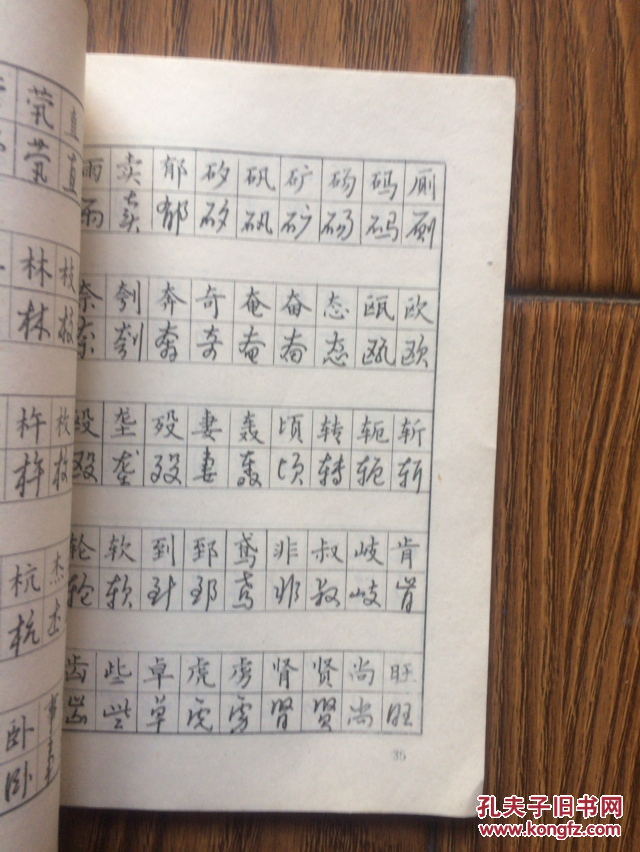 茕 直
茕 直
林 枝
林 枝
杵 枚
杵 枚
杭 杰
杭 杰
卧 事
卧 事
雨 卖 郁 矽 矾 矿 砀 码 厕
雨 卖 郁 矽 矾 矿 砀 码 厕
奈 刳 奔 奇 奄 奋 态 瓯 欧
奈 刳 奔 奇 奄 奋 态 瓯 欧
殴 垄 殁 妻 轰 顷 转 轭 斩
殴 垄 殁 妻 轰 顷 转 轭 斩
轮 软 到 郅 鸢 非 叔 歧 肯
轮 软 到 郅 鸢 非 叔 歧 肯
齿 些 卓 虎 虏 肾 贤 尚 旺
齿 些 卓 虎 虏 肾 贤 尚 旺
35
孔夫子旧书网
www.kongfz.com